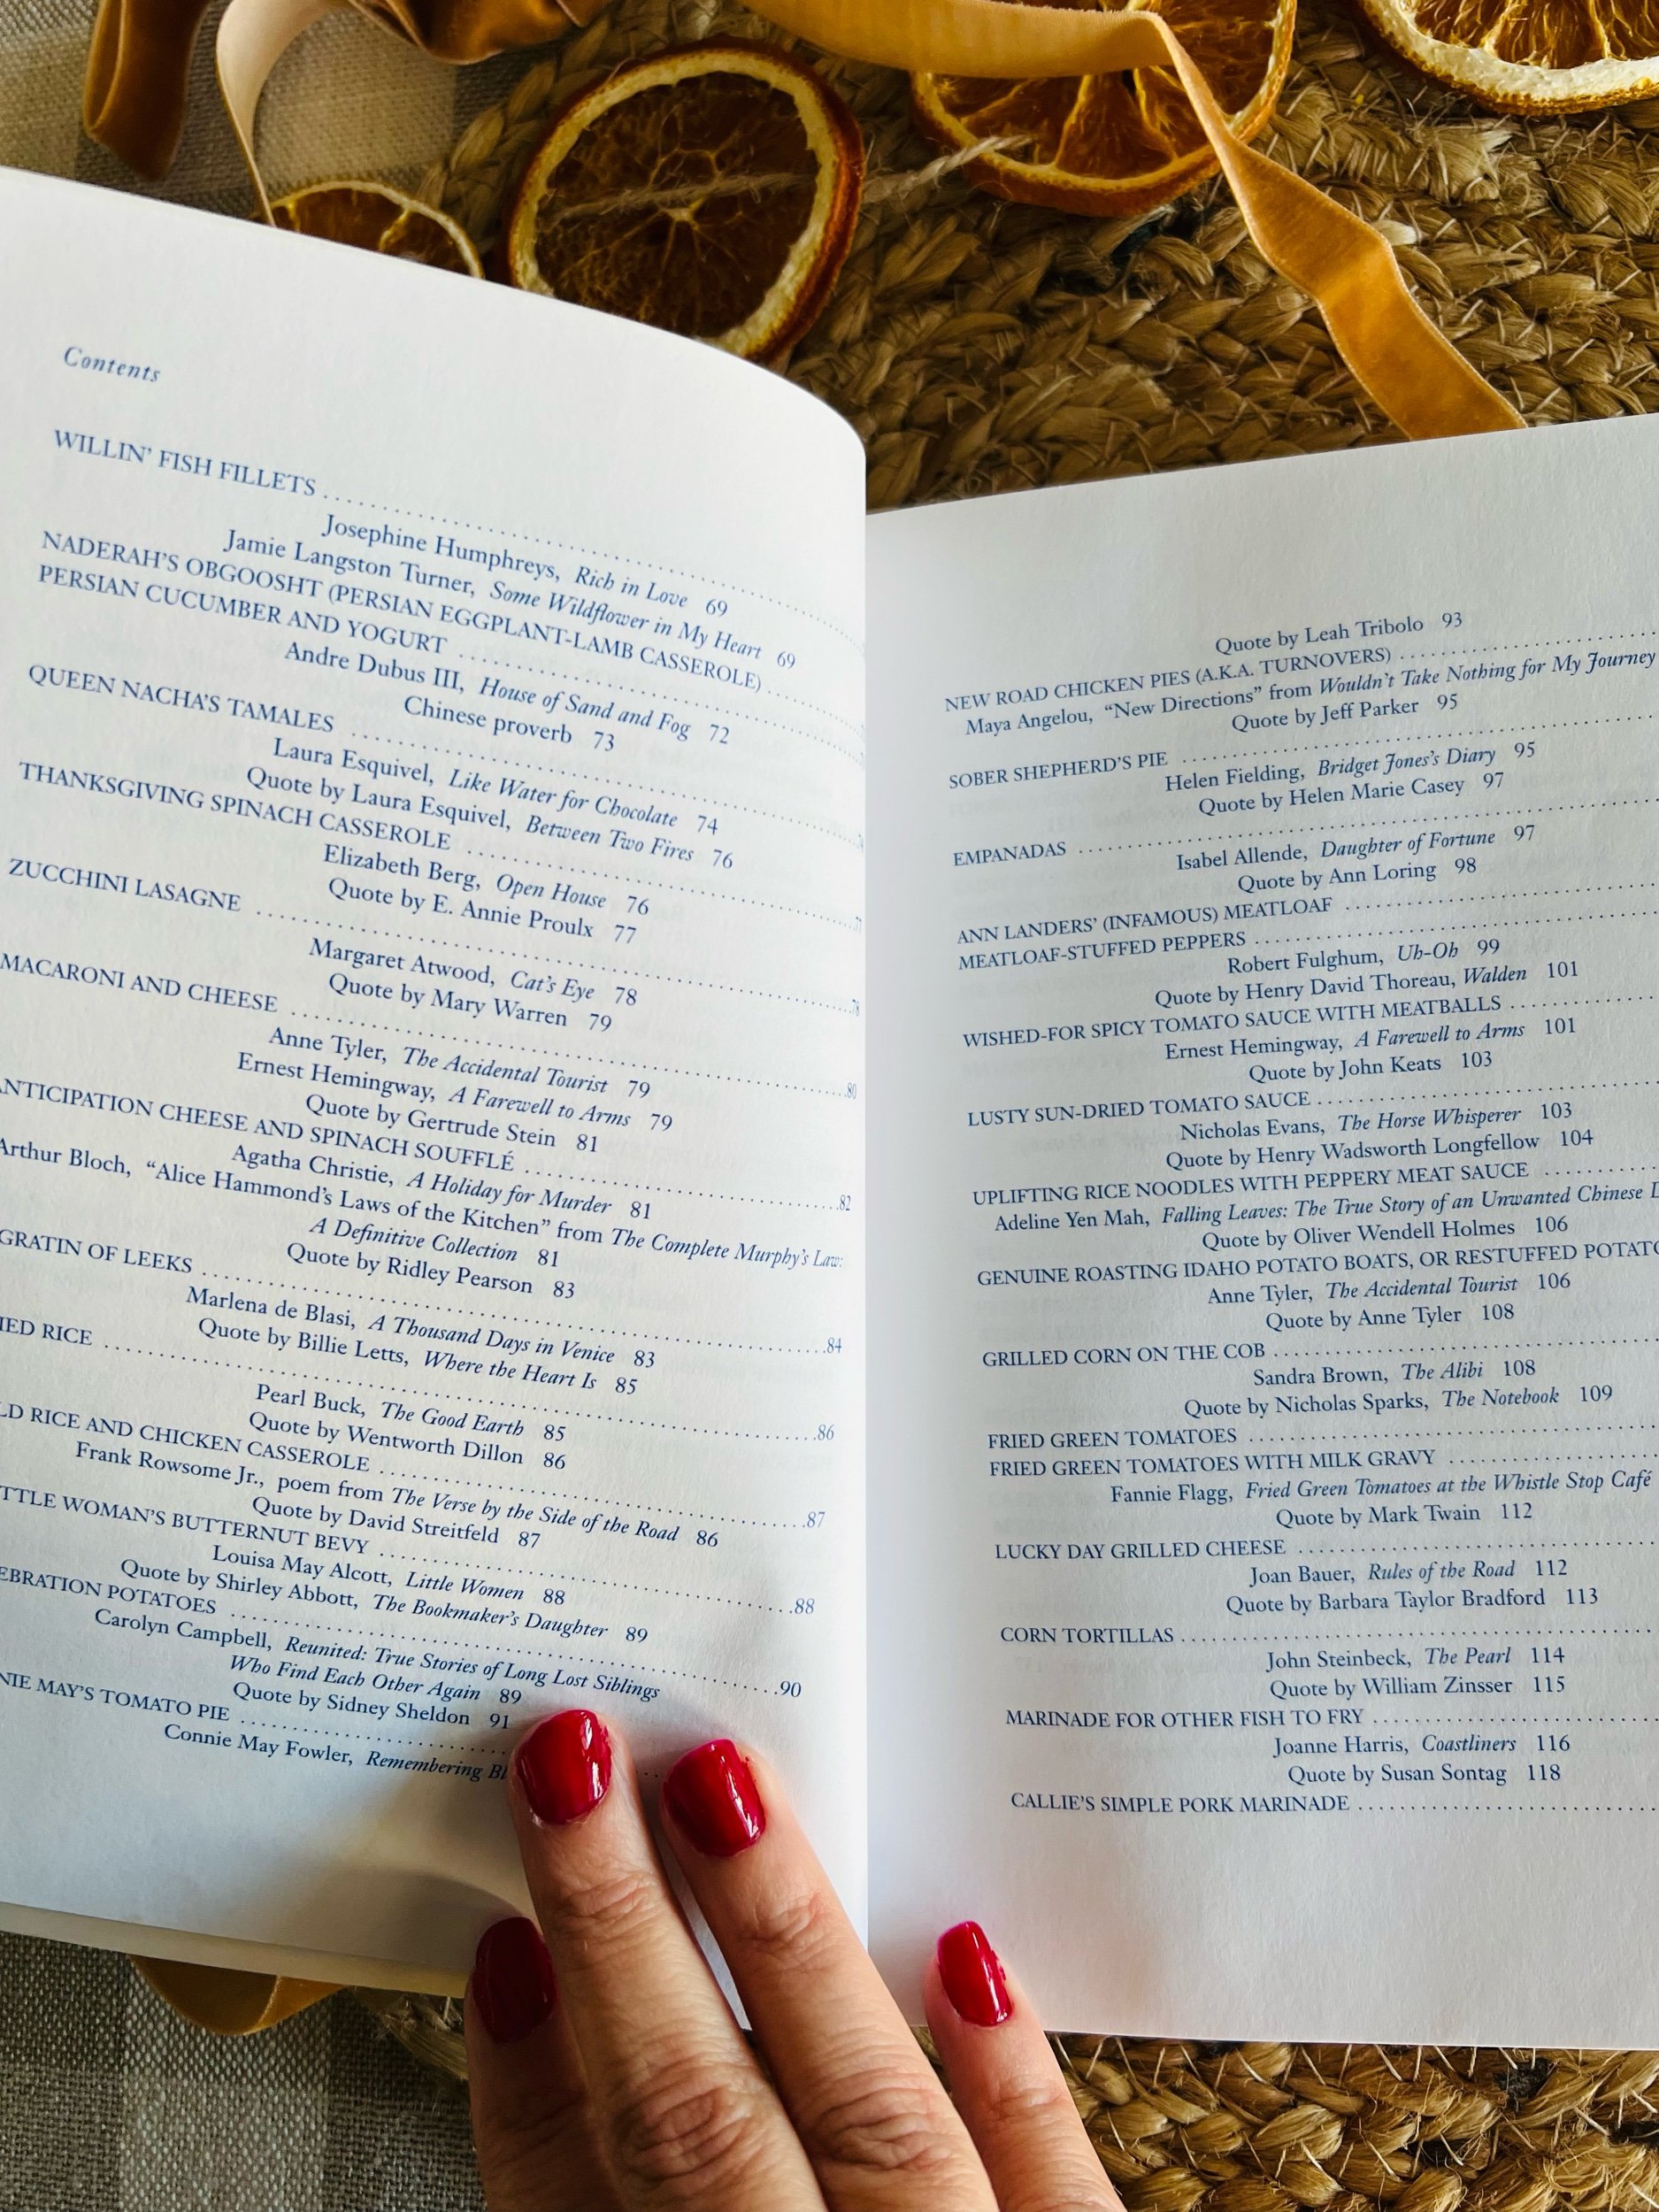 Contents
WILLIN' FISH FILLETS
Josephine Humphreys, Rich in Love 69
Jamie Langston Turner, Some Wildflower in My Heart 69
NADERAH'S OBGOOSHT (PERSIAN EGGPLANT-LAMB CASSEROLE)
PERSIAN CUCUMBER AND YOGURT
Andre Dubus III, House of Sand and Fog 72
Chinese proverb 73
QUEEN NACHA'S TAMALES
Laura Esquivel, Like Water for Chocolate 74
Quote by Laura Esquivel, Between Two Fires 76
THANKSGIVING SPINACH CASSEROLE
Elizabeth Berg, Open House 76
Quote by E. Annie Proulx 77
ZUCCHINI LASAGNE ... 78
Margaret Atwood, Cat's Eye 78
Quote by Mary Warren 79
MACARONI AND CHEESE ... 80
Anne Tyler, The Accidental Tourist 79
Ernest Hemingway, A Farewell to Arms 79
Quote by Gertrude Stein 81
ANTICIPATION CHEESE AND SPINACH SOUFFLÉ ... 82
Agatha Christie, A Holiday for Murder 81
Arthur Bloch, "Alice Hammond's Laws of the Kitchen" from The Complete Murphy's Law:
A Definitive Collection 81
Quote by Ridley Pearson 83
GRATIN OF LEEKS ... 84
Marlena de Blasi, A Thousand Days in Venice 83
Quote by Billie Letts, Where the Heart Is 85
IED RICE ... 86
Pearl Buck, The Good Earth 85
Quote by Wentworth Dillon 86
LD RICE AND CHICKEN CASSEROLE ... 87
Frank Rowsome Jr., poem from The Verse by the Side of the Road 86
Quote by David Streitfeld 87
TTLE WOMAN'S BUTTERNUT BEVY ... 88
Louisa May Alcott, Little Women 88
Quote by Shirley Abbott, The Bookmaker's Daughter 89
EBRATION POTATOES ... 90
Carolyn Campbell, Reunited: True Stories of Long Lost Siblings
Who Find Each Other Again 89
Quote by Sidney Sheldon 91
NIE MAY'S TOMATO PIE
Connie May Fowler, Remembering Bl
Quote by Leah Tribolo 93
NEW ROAD CHICKEN PIES (A.K.A. TURNOVERS)
Maya Angelou, "New Directions" from Wouldn't Take Nothing for My Journey
Quote by Jeff Parker 95
SOBER SHEPHERD'S PIE
Helen Fielding, Bridget Jones's Diary 95
Quote by Helen Marie Casey 97
EMPANADAS
Isabel Allende, Daughter of Fortune 97
Quote by Ann Loring 98
ANN LANDERS' (INFAMOUS) MEATLOAF
MEATLOAF-STUFFED PEPPERS
Robert Fulghum, Uh-Oh 99
Quote by Henry David Thoreau, Walden 101
WISHED-FOR SPICY TOMATO SAUCE WITH MEATBALLS
Ernest Hemingway, A Farewell to Arms 101
Quote by John Keats 103
LUSTY SUN-DRIED TOMATO SAUCE
Nicholas Evans, The Horse Whisperer 103
Quote by Henry Wadsworth Longfellow 104
UPLIFTING RICE NOODLES WITH PEPPERY MEAT SAUCE
Adeline Yen Mah, Falling Leaves: The True Story of an Unwanted Chinese
Quote by Oliver Wendell Holmes 106
GENUINE ROASTING IDAHO POTATO BOATS, OR RESTUFFED POTATO
Anne Tyler, The Accidental Tourist 106
Quote by Anne Tyler 108
GRILLED CORN ON THE COB
Sandra Brown, The Alibi 108
Quote by Nicholas Sparks, The Notebook 109
FRIED GREEN TOMATOES
FRIED GREEN TOMATOES WITH MILK GRAVY
Fannie Flagg, Fried Green Tomatoes at the Whistle Stop Café
Quote by Mark Twain 112
LUCKY DAY GRILLED CHEESE
Joan Bauer, Rules of the Road 112
Quote by Barbara Taylor Bradford 113
CORN TORTILLAS
John Steinbeck, The Pearl 114
Quote by William Zinsser 115
MARINADE FOR OTHER FISH TO FRY
Joanne Harris, Coastliners 116
Quote by Susan Sontag 118
CALLIE'S SIMPLE PORK MARINADE